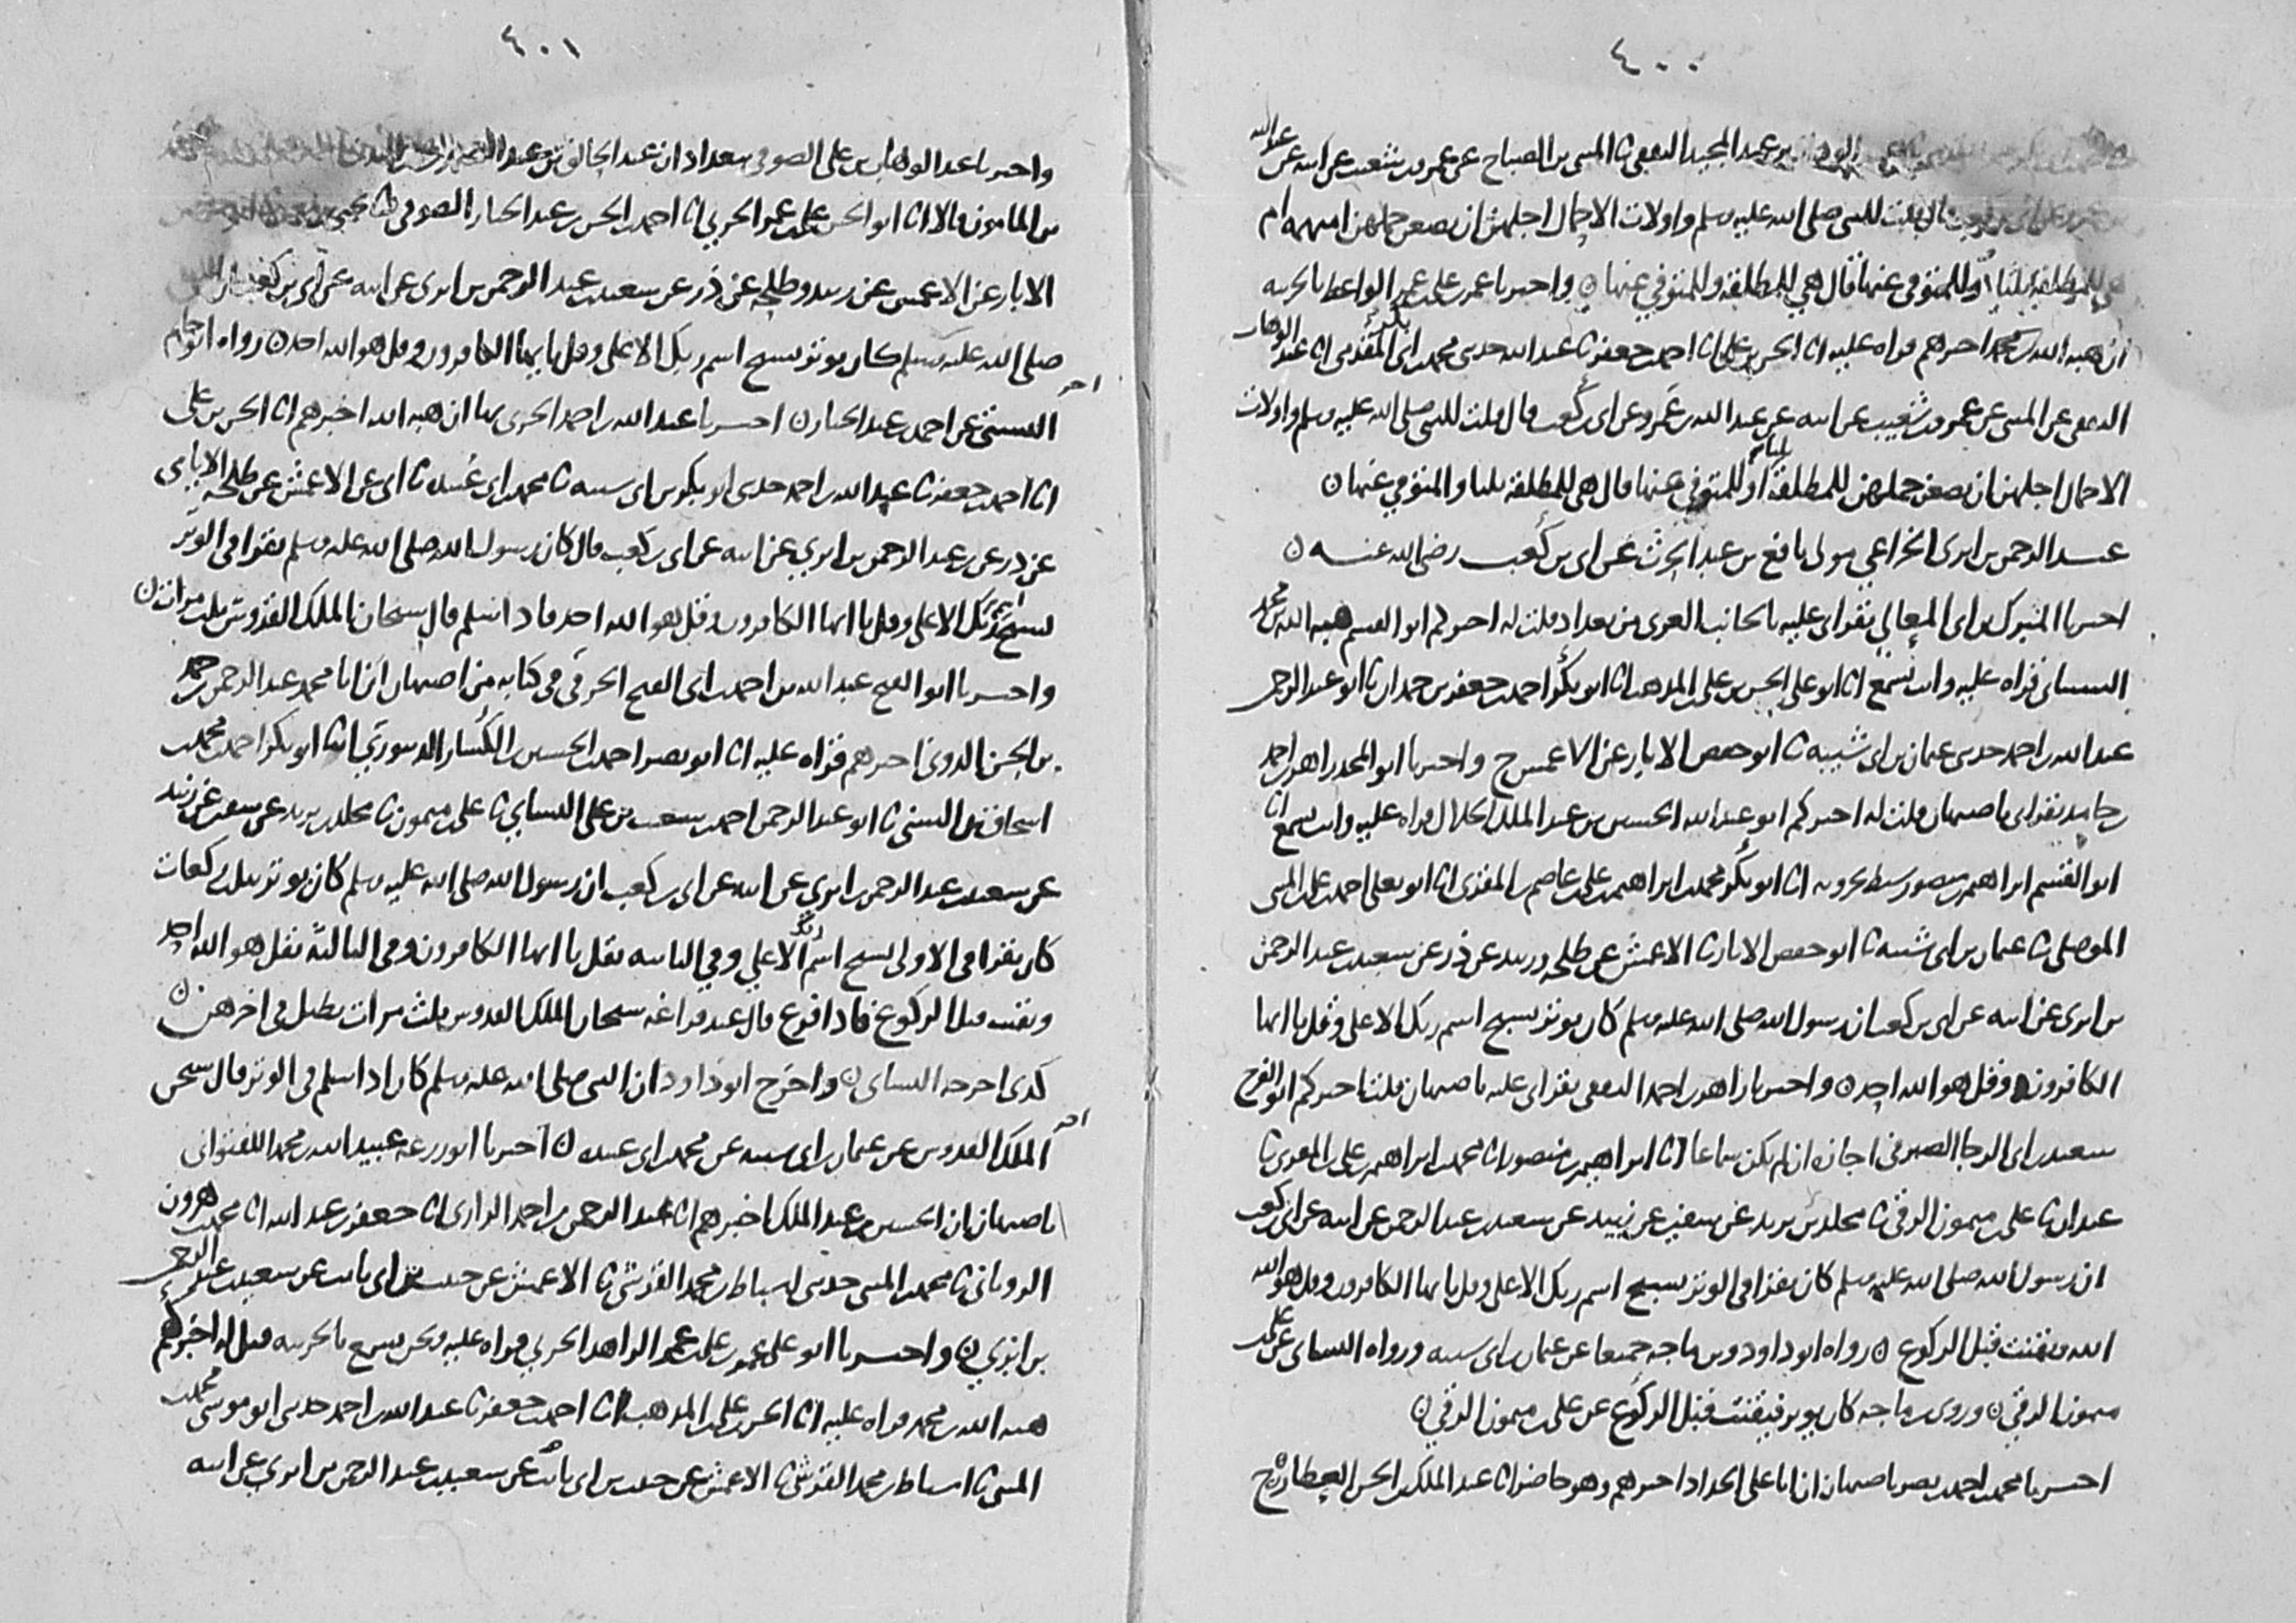 ٤٠٠
عبد الوهاب بن عبد المجيد الثقفي ثنا المثنى بن الصباح عن عمرو بن شعيب عن ابيه عن عبد الله
قال قلت للنبي صلى الله عليه وسلم واولات الاحمال اجلهن ان يضعن حملهن امبهمة ام
للمطلقة ثلثا او للمتوفى عنها قال هي للمطلقة وللمتوفي عنها ن واخبرنا عمر بن علي بن عمر الواعظ بالحربيه
ان هبة الله بن محمد اخبرهم قراه عليه انا الحسن بن علي انا احمد بن جعفر ثنا عبد الله حدثني محمد بن ابي بكر المقدمي انا عبد الوهاب
الثقفي عن المثنى عن عمرو بن شعيب عن ابيه عن عبد الله بن عمرو عن ابي بن كعب قال قلت للنبي صلى الله عليه وسلم واولات
الاحمال اجلهن ان يضعن حملهن للمطلقة ثلثا او للمتوفي عنها قال هي للمطلقة ثلثا والمتوفي عنها ن
عبد الرحمن بن ابزى الخزاعي مولى نافع بن عبد الحرث عن ابي بن كعب رضي الله عنه ن
اخبرنا المبرك بن ابي المعالي بقراتي عليه بالجانب الغربي من بغداد قلت له اخبركم ابو القسم هبة الله بن محمد
الشيباني قراه عليه وانت تسمع انا ابو علي الحسن بن علي بن المذهب انا ابو بكر احمد بن جعفر بن حمدان ثنا ابو عبد الرحمن
عبد الله بن احمد حدثني عثمان بن ابي شيبه ثنا ابو حفص الابار عن الاعمش ح واخبرنا ابو المجد زاهر بن احمد
بن حامد بقراتي باصبهان قلت له اخبركم ابو عبد الله الحسين بن عبد الملك الخلال قراه عليه وانت تسمع انا
ابو القسم ابراهيم بن منصور سبط بحرويه انا ابو بكر محمد بن ابراهيم بن علي بن عاصم بن المقرى انا ابو يعلى احمد بن علي بن المثنى
الموصلي ثنا عثمان بن ابي شيبه ثنا ابو حفص الابار ثنا الاعمش عن طلحه وزبيد عن ذر عن سعيد بن عبد الرحمن
بن ابزى عن ابيه عن ابي بن كعب ان رسول الله صلى الله عليه وسلم كان يوتر بسبح اسم ربك الاعلى وقل يا ايها
الكافرون وقل هو الله احد ن واخبرنا زاهر بن احمد الثقفي بقراتي عليه باصبهان قلت اخبركم ابو الفرج
سعيد بن ابي الرجا الصيرفي اجازه ان لم يكن سماعا انا ابراهيم بن منصور انا محمد بن ابراهيم بن علي بن المقرى ثنا
عبدان ثنا علي بن ميمون الرقي ثنا مخلد بن يزيد عن سفين عن زبيد عن سعيد بن عبد الرحمن عن ابيه عن ابي بن كعب
ان رسول الله صلى الله عليه وسلم كان يقرا في الوتر بسبح اسم ربك الاعلى وقل يا ايها الكافرون وقل هو الله
الله ويقنت قبل الركوع ن رواه ابو داود وبن ماجه جميعا عن عثمان بن ابي شيبه ورواه النسائي عن علي بن
ميمون الرقي ن وروى بن ماجه كان يوتر فيقنت قبل الركوع عن علي بن ميمون الرقي ن
اخبرنا محمد بن احمد بن نصر باصبهان ان ابا علي الحداد اخبرهم وهو حاضر انا عبد الملك بن الحسن العطار ح
٤٠١
واخبرنا عبد الوهاب بن علي الصوفي ببغداد ان عبد الخالق بن عبد الصمد
بن المامون قالا انا ابو الحسن علي بن عمر الحربي انا احمد بن الحسن بن عبد الجبار الصوفي ثنا يحيى بن
الابار عن الاعمش عن زبيد وطلحه عن ذر عن سعيد بن عبد الرحمن بن ابزى عن ابيه عن ابي بن كعب
صلى الله عليه وسلم كان يوتر بسبح اسم ربك الاعلى وقل يا ايها الكافرون وقل هو الله احد ن رواه ابو حاتم
البستي عن احمد بن عبد الجبار ن اخبرنا عبد الله بن احمد الحربي بها ان هبة الله اخبرهم انا الحسن بن علي
انا احمد بن جعفر ثنا عبد الله بن احمد حدثني ابو بكر بن ابي شيبه ثنا محمد بن ابي عبيدة ثنا ابي عن الاعمش عن طلحه الايامي
عن ذر عن بن عبد الرحمن بن ابزي عن ابيه عن ابي بن كعب قال كان رسول الله صلى الله عليه وسلم يقرا في الوتر
بسبح اسم ربك الاعلى وقل يا ايها الكافرون وقل هو الله احد فاذا سلم قال سبحان الملك القدوس ثلث مرات ن
واخبرنا ابو الفتح عبد الله بن احمد بن ابي الفتح الخرقي في كتابه من اصبهان ان ابا محمد عبد الرحمن بن حمد
بن الحسن الدوني اخبرهم قراه عليه انا ابو نصر احمد بن الحسين بن الكسار الدينوري انا ابو بكر احمد بن محمد بن
اسحاق بن السني ثنا ابو عبد الرحمن احمد بن شعيب بن علي النسائي ثنا علي بن ميمون ثنا مخلد بن يزيد عن سفين عن زبيد
عن سعيد بن عبد الرحمن بن ابزى عن ابيه عن ابي بن كعب ان رسول الله صلى الله عليه وسلم كان يوتر بثلث ركعات
كان يقرا في الاولى بسبح اسم ربك الاعلي وفي الثانيه بقل يا ايها الكافرون وفي الثالثة بقل هو الله احد
ويقنت قبل الركوع فاذا فرغ قال عند فراغه سبحان الملك القدوس ثلث مرات يطيل في اخرهن ن
كذى اخرجه النسائي ن واخرج ابو داود ان النبي صلى الله عليه وسلم كان اذا سلم في الوتر قال سبحن
الملك القدوس عن عثمان بن ابي شيبه عن محمد بن ابي عبيده ن اخبرنا ابو زرعه عبيد الله بن محمد اللفتواني
باصبهان ان الحسين بن عبد الملك اخبرهم انا عبد الرحمن بن احمد الرازي انا جعفر بن عبد الله انا محمد بن هرون
الروياني ثنا محمد بن المثنى حدثني اسباط بن محمد القرشي ثنا الاعمش عن حبيب بن ابي ثابت عن سعيد بن عبد الرحمن
بن ابزي ن واخبرنا ابو علي عمر بن علي بن عمر الزاهد الحربي قراه عليه ونحن نسمع بالحربيه قيل له اخبركم
هبة الله بن محمد قراه عليه انا الحسن بن علي بن المذهب انا احمد بن جعفر ثنا عبد الله بن احمد حدثني ابو موسى محمد بن
المثنى ثنا اسباط بن محمد القرشي ثنا الاعمش عن حبيب بن ابي ثابت عن سعيد بن عبد الرحمن بن ابزي عن ابيه